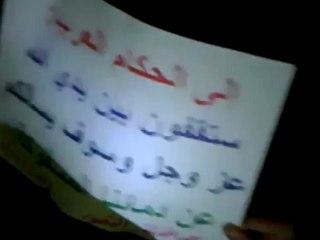 الى الحكام العرب
ستقفون بين يدي الله
عز وجل وسوف يسألكم
عن دمائنا